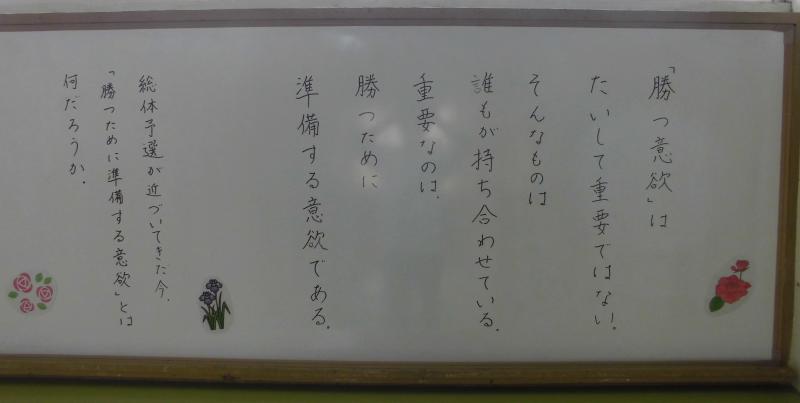 「勝つ意欲」は
たいして重要ではない。
そんなものは
誰もが持ち合わせている。
重要なのは、
勝つために
準備する意欲である。
総体予選が近づいてきた今、
「勝つために準備する意欲」とは
何だろうか。